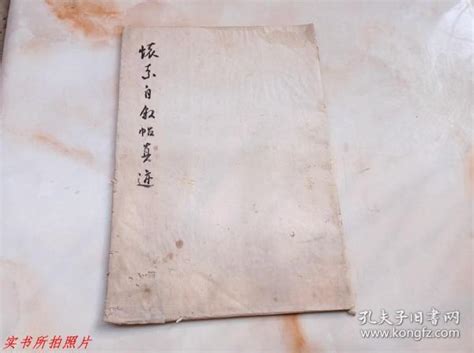 懷素自叙帖真迹
实书所拍照片
孔夫子旧书网
www.kongfz.com